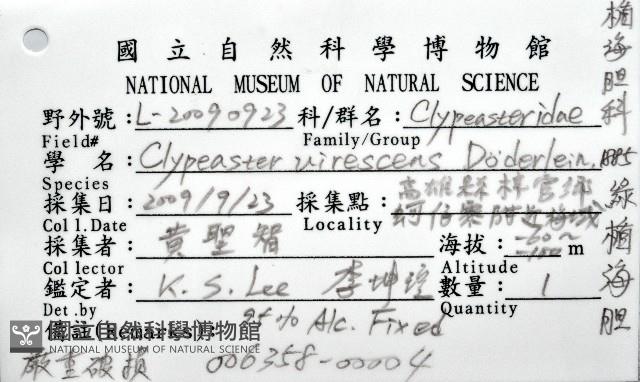 國立自然科學博物館
NATIONAL MUSEUM OF NATURAL SCIENCE
野外號：L-20090923 科/群名：Clypeasteridae
Field# Family/Group
學 名：Clypeaster virescens Döderlein, 1885
Species
採集日：2009/9/23 採集點：高雄縣林官鄉
蚵仔寮附近海域
Col l.Date Locality
採集者：黃聖智 海拔：-60~-100 m
Col lector Altitude
鑑定者：K. S. Lee 李坤瑄 數量：1
Det.by Quantity
95% Alc. Fixed
國立自然科學博物館
NATIONAL MUSEUM OF NATURAL SCIENCE
嚴重破損 000358-00004
楯海胆科
綠楯海胆